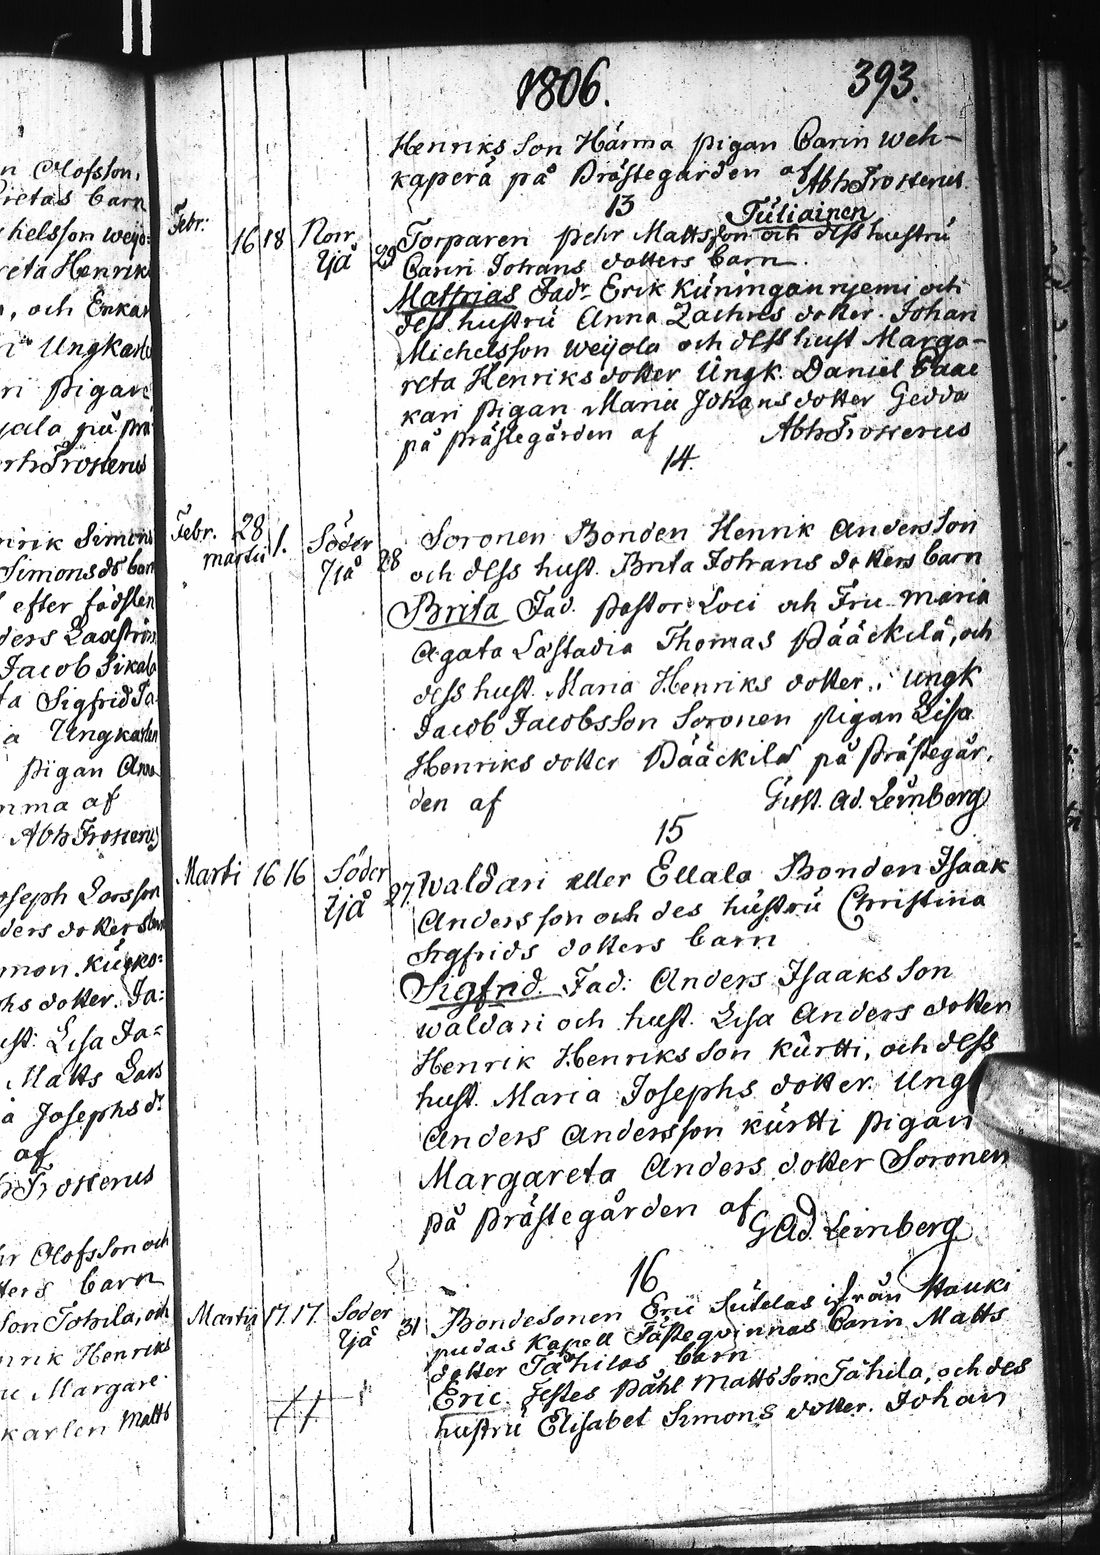 n Olofsson,
retas barn
helsson weijo=
reta Henriks
, och Erkar
Ungkarl
ri pigan
jala på prä
Trosterus
nrik Simons
Simons do barn
efter fodslen
ders Laxström
Jacob Sikala
ta Sigfrid Ja
a Ungkarlen
pigan Ana
mma af
Abh Frosterus
oseph Larsson
ders dotters barn
mon kurko=
hs dotter. Ja=
ust: Lisa Ja=
Matts Lars
a Josephs dr
af
Frosterus
hr Olofsson och
tters barn
son Tohila, och
nrik Henriks
Margare
karlen Matts
1806. 393.
Henriks Son Härma pigan Carin Weh-
kaperä på Prästegården af Abh Frosterus.
13
Febr: 16 18 Norr ijå 29 Torparen pehr Mattsson Tuliainen och dess hustru
Carin Johans dotters barn.
Mathias Fadr Erik Kuningan njemi och
dess hustru Anna Zachris dotter. Johan
Michelsson Weijola och dess hust Marga-
reta Henriks dotter Ungk. Daniel Paac
kari pigan Maria Johans dotter Gedda
på prästegården af Abh Frosterus
14.
Febr. 28 martii 1. Söder ijå 28 Soronen Bonden Henrik Andersson
och dess hust. Brita Johans dotters barn
Brita Fad. Pastor Loci och Fru Maria
Agata Lastadia Thomas Pääckilä, och
dess hust. Maria Henriks dotter, Ungk
Jacob Jacobsson Soronen pigan Lisa
Henriks dotter Pääckilä på prästegår.
den af Gust. Ad. Leinberg
15
Marti 16 16 Söder ijå 27. Waldari eller Ellala Bonden Isaak
Andersson och des hustru Christina
Sigfrids dotters barn
Sigfrid. Fad: Anders Isaaks Son
Waldari och hust. Lisa Anders dotter
Henrik Henriks Son Kurtti, och dess
hust. Maria Josephs dotter. Ung
Anders Andersson Kurtti pigan
Margareta Anders dotter Soronen
på prästegården af
G Ad. Leinberg
16
Martii 17. 17. Söder ijå 31 Bondesonen Eric Sutelas ifrån Hauki
pudas Kapell Fästeqvinnas Carin Matts
dotter Tähilas barn
Eric. Testes Påhl Mattsson Tähila, och des
hustru Elisabet Simons dotter. Johan